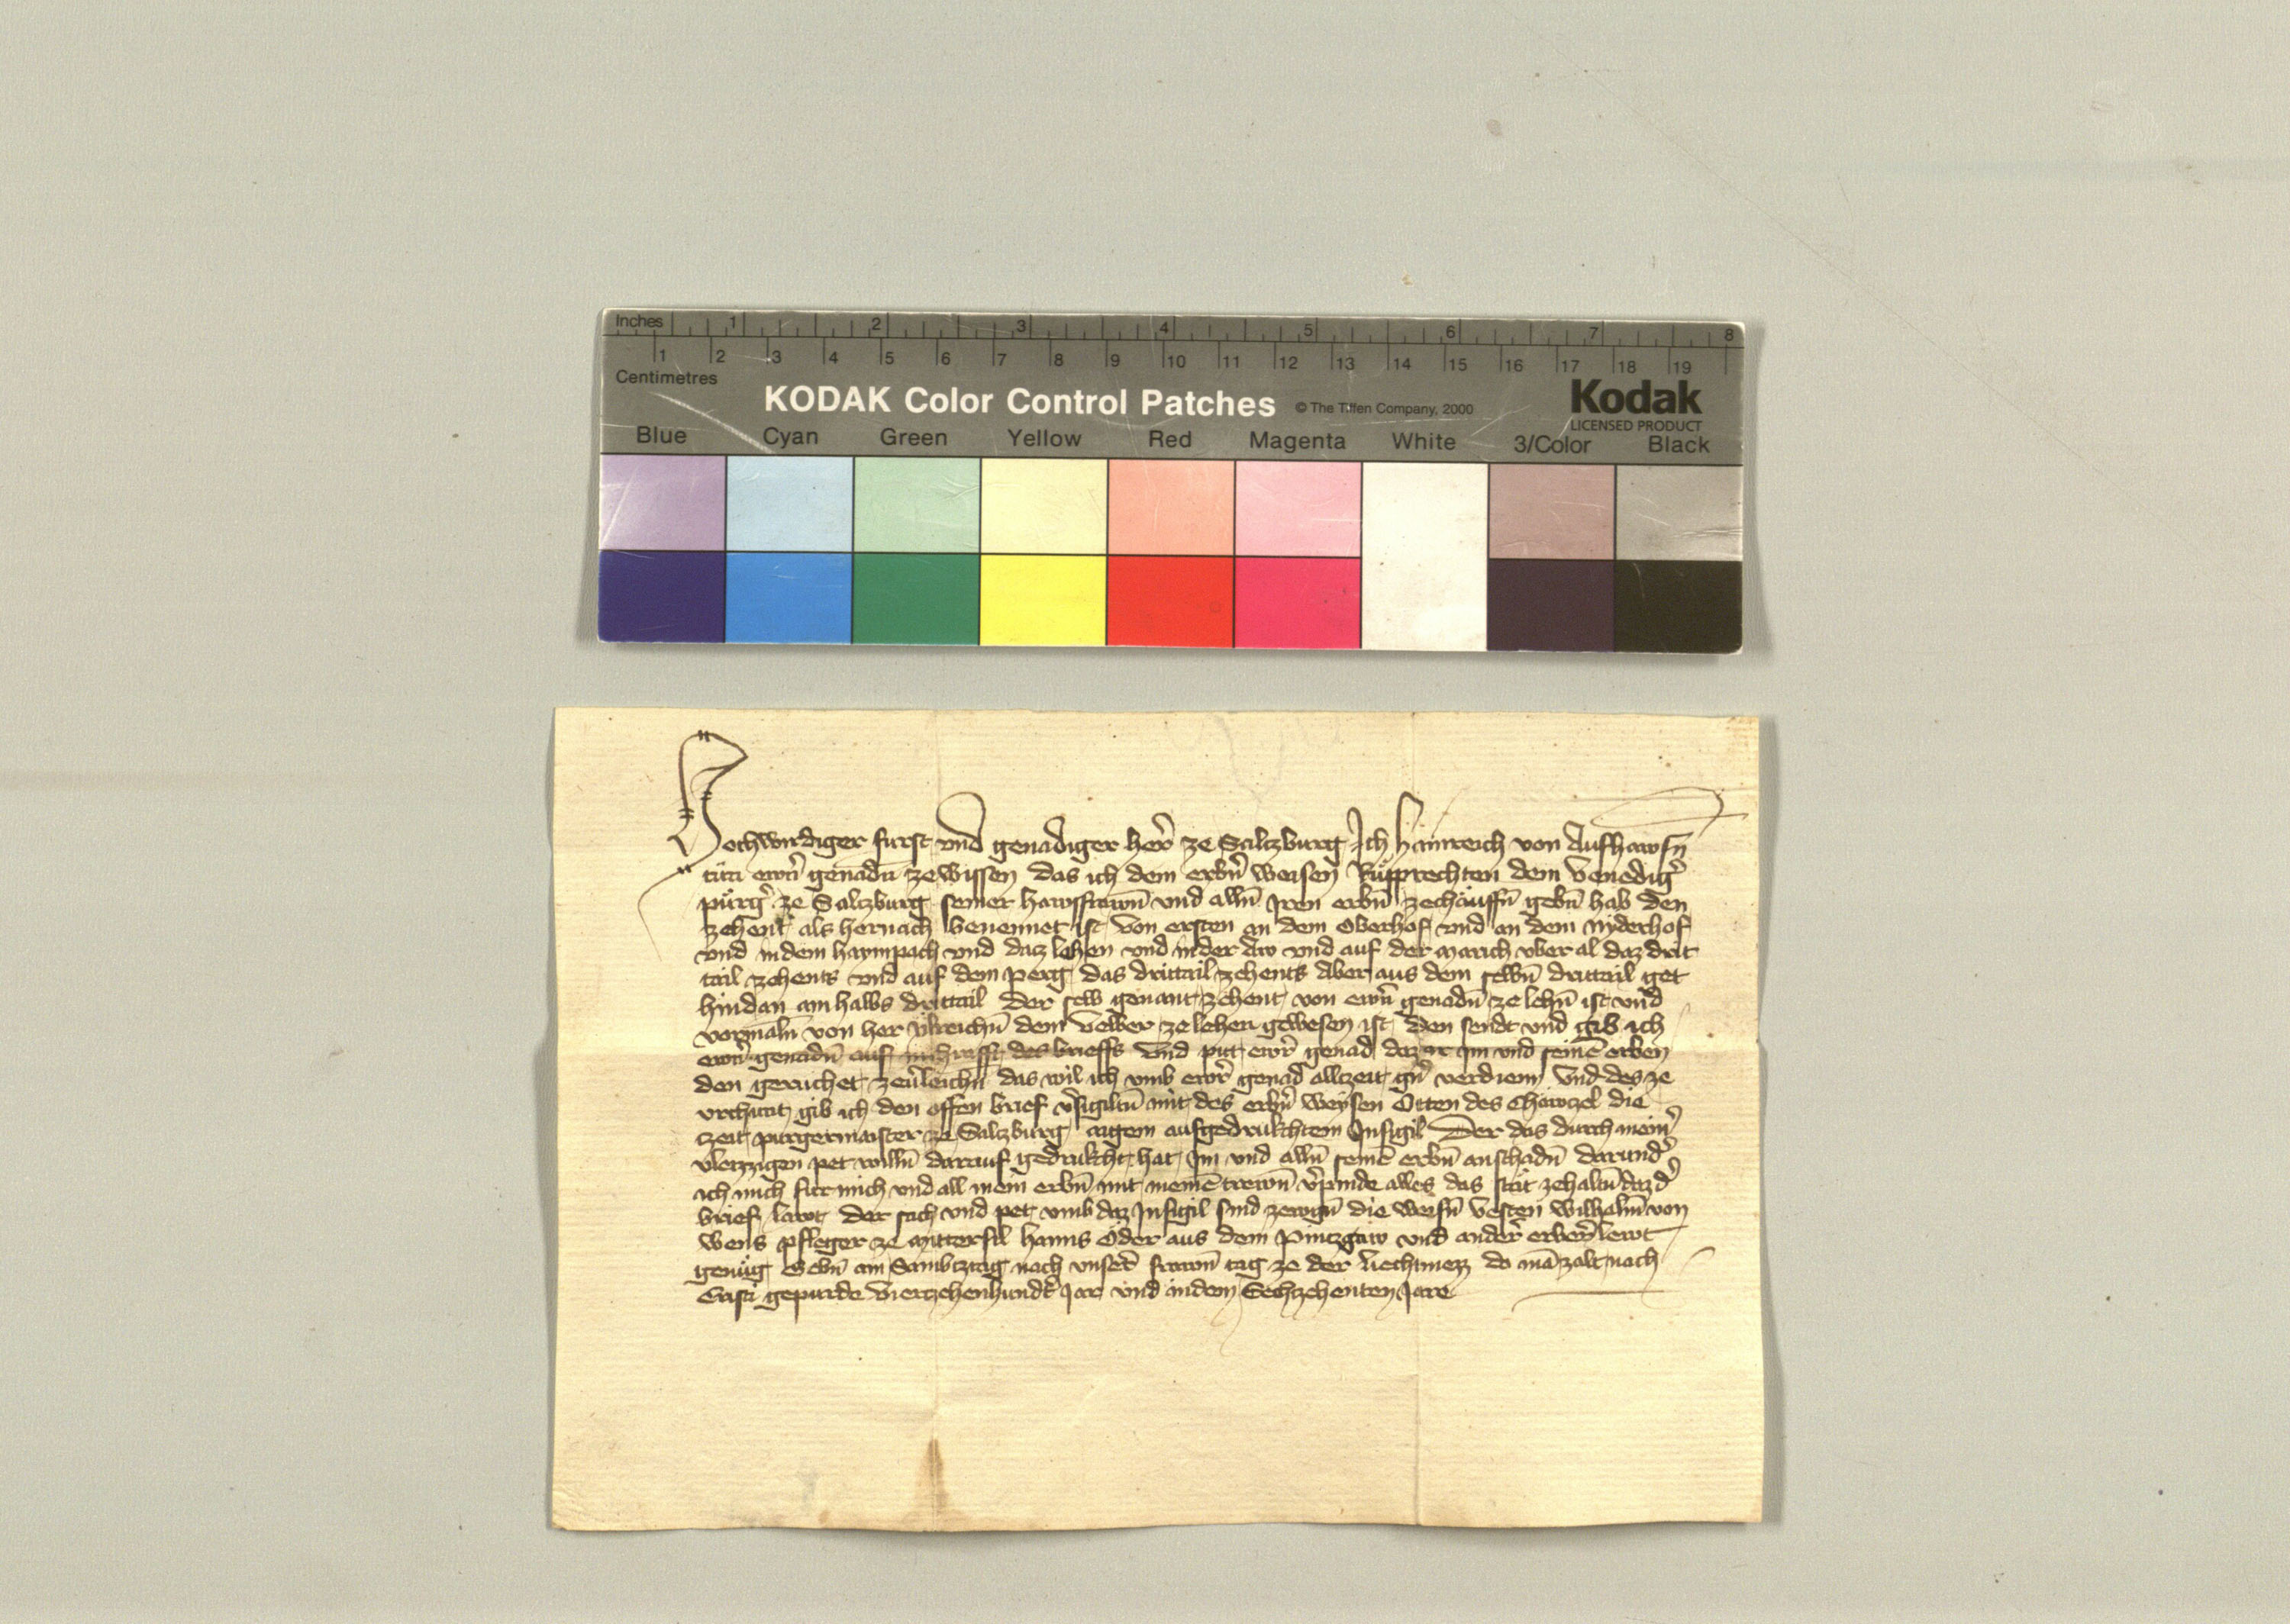 Inches 1 2 3 4 5 6 7 8
1 2 3 4 5 6 7 8 9 10 11 12 13 14 15 16 17 18 19
Centimetres
KODAK Color Control Patches © The Tiffen Company, 2000 Kodak
LICENSED PRODUCT
Blue Cyan Green Yellow Red Magenta White 3/Color Black
Hochwirdiger furst vnd genadiger her̄ ze Saltzburg Ich Hainreich von Aufhawsn̄
tün ewrn̄ genadn̄ ze wissen das ich dem erbn̄ weisen Rüpprechten dem Venediḡ
purḡ ze Saltzburg seiner hawsfrawn̄ vnd alln̄ Iren erbn̄ zechauffn̄ gebn̄ hab den
zehent als hernach benennet ist von ersten an dem Oberhof vnd an dem Nyderhof
vnd in dem haympach vnd daz lehen vnd in der Aw vnd auf der March vber al daz drit
tail zehents vnd auf dem perg das drittail zehents Aber aus dem selbn̄ drittail get
hindan ain halbs drittail Der selb genant zehent von ewrn̄ genadn̄ ze lehn̄ ist vnd
vormaln̄ von her Vlreichn̄ dem Velber ze lehen gewesen ist den sendt vnd gib ich
ewrn̄ genadn̄ auf mit des brieffs vnd pit ewr̄ genad daz ir im vnd seinē erben
den geruchet zeu̇leichn̄ das wil ich vmb ewr̄ genad allzeit gn̄ verdienn̄ Vnd des ze
vrchunt gib ich den offen brief v̄sigiltn̄ mit des erbn̄ weysen Otten des Chäwzel die
czeit purgermaister ze Saltzburg aigem aufgedrukchtem Insigil Der das durch meinr̄
vleizzigen pet willn̄ darauf gedrukcht hat im vnd alln̄ seinē erbn̄ an schadn̄ darund̄
ich mich fur mich vnd all mein erbn̄ mit meinē trewn̄ v̄pinde alles das stät zehaltn̄ daz d̄
brief lawt der sach vnd pet vmb daz Insigil sind zewgn̄ die weisn̄ vesten Wilhalm̄ von
Wens pfleger ze Mittersil Hanns Öder aus dem Pintzgaw vnd ander̄ erber̄ lewt
genüg Gebn̄ am Sambtztag nach vnser̄ frawn̄ tag ze der liechtmezz do mā zalt nach
Cristi gepurde Vierzehenhundt̄ Jar vnd in dem Sechzehenten Jare